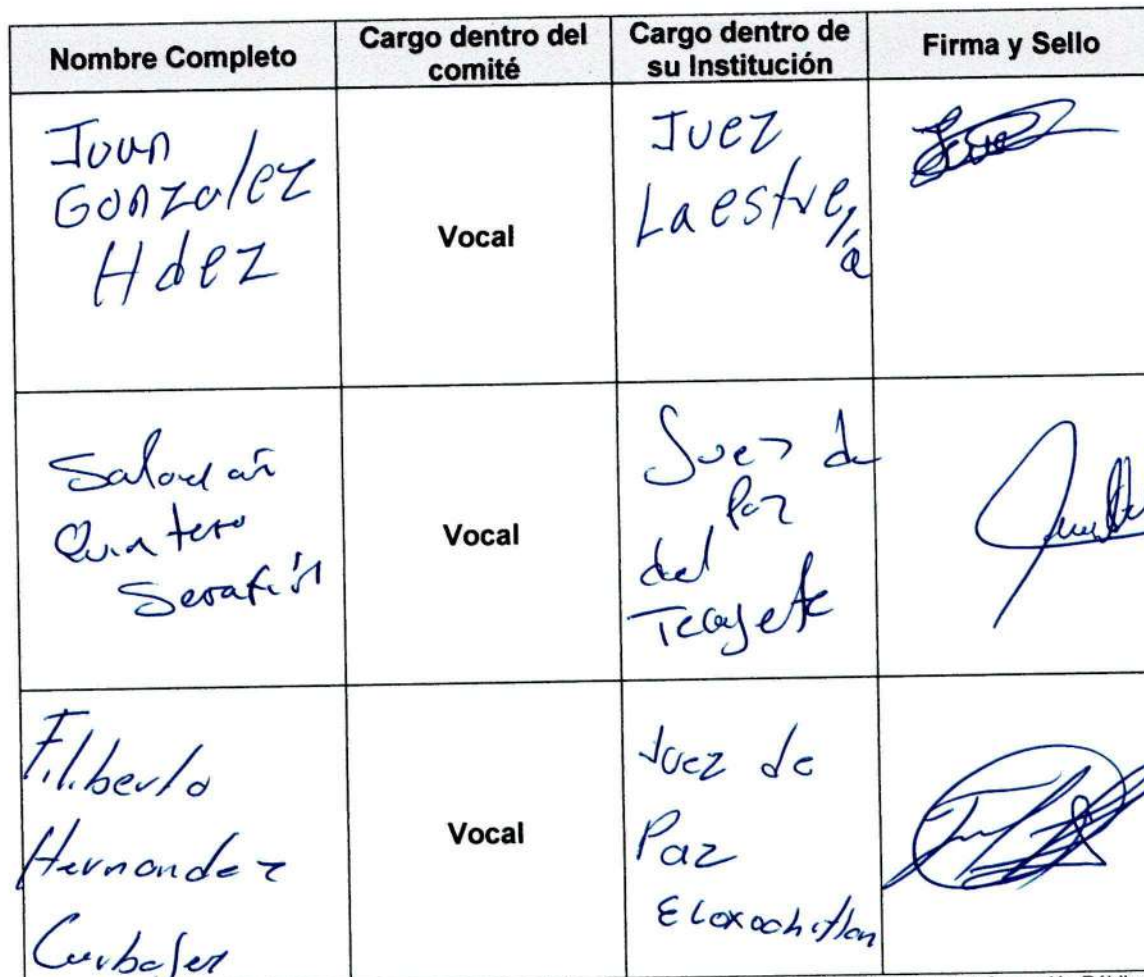 Nombre Completo
Cargo dentro del
comité
Cargo dentro de
su Institución
Firma y Sello
Juan
Gonzalez
Hdez
Vocal
Juez
La estrella
Quintero
Serafín
Vocal
Juez de
Paz
del
Tecoyete
Filiberto
Hernandez
Vocal
Juez de
Paz
Eloxochitlan